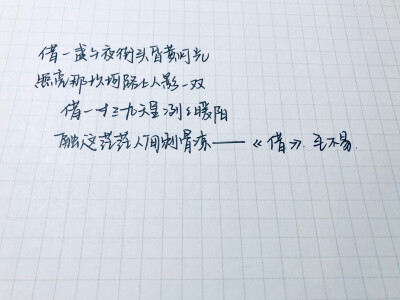 借一盏午夜街头昏黄灯光
照亮那坎坷路上人影一双
借一寸三九天里冽々暖阳
融这茫茫人间刺骨凉——《借》毛不易